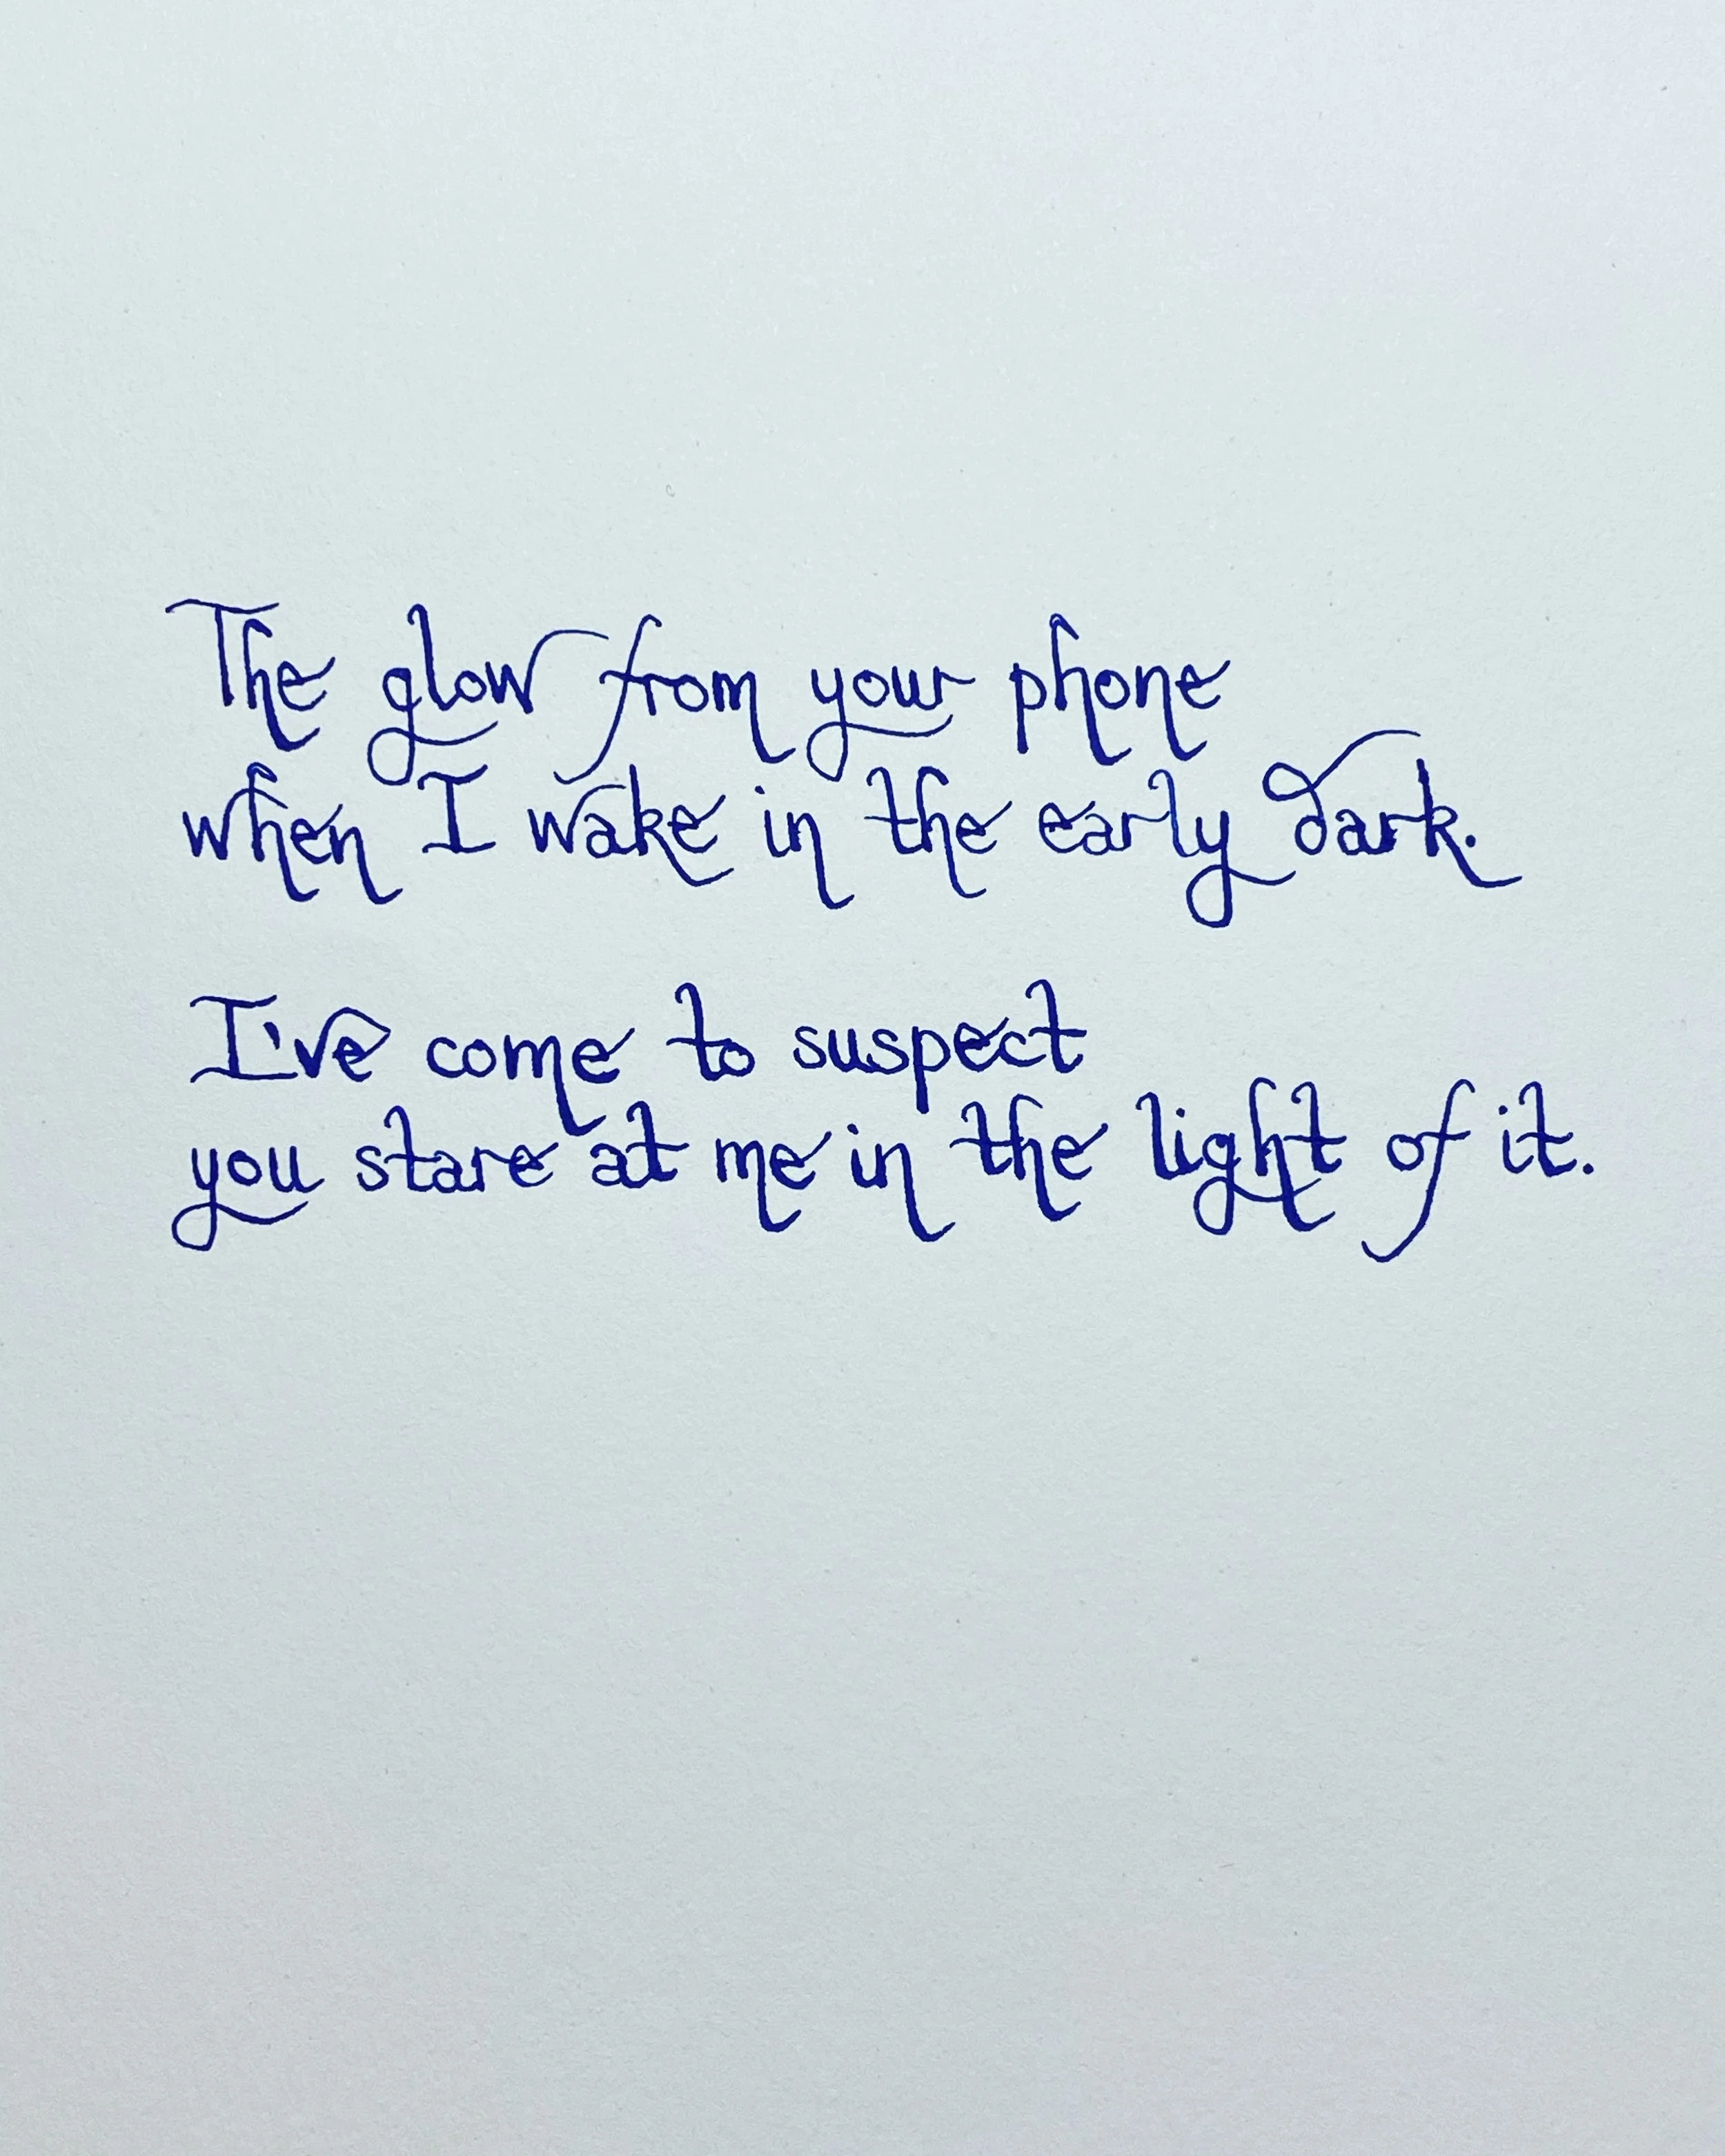 The glow from your phone
when I wake in the early dark.
I've come to suspect
you stare at me in the light of it.